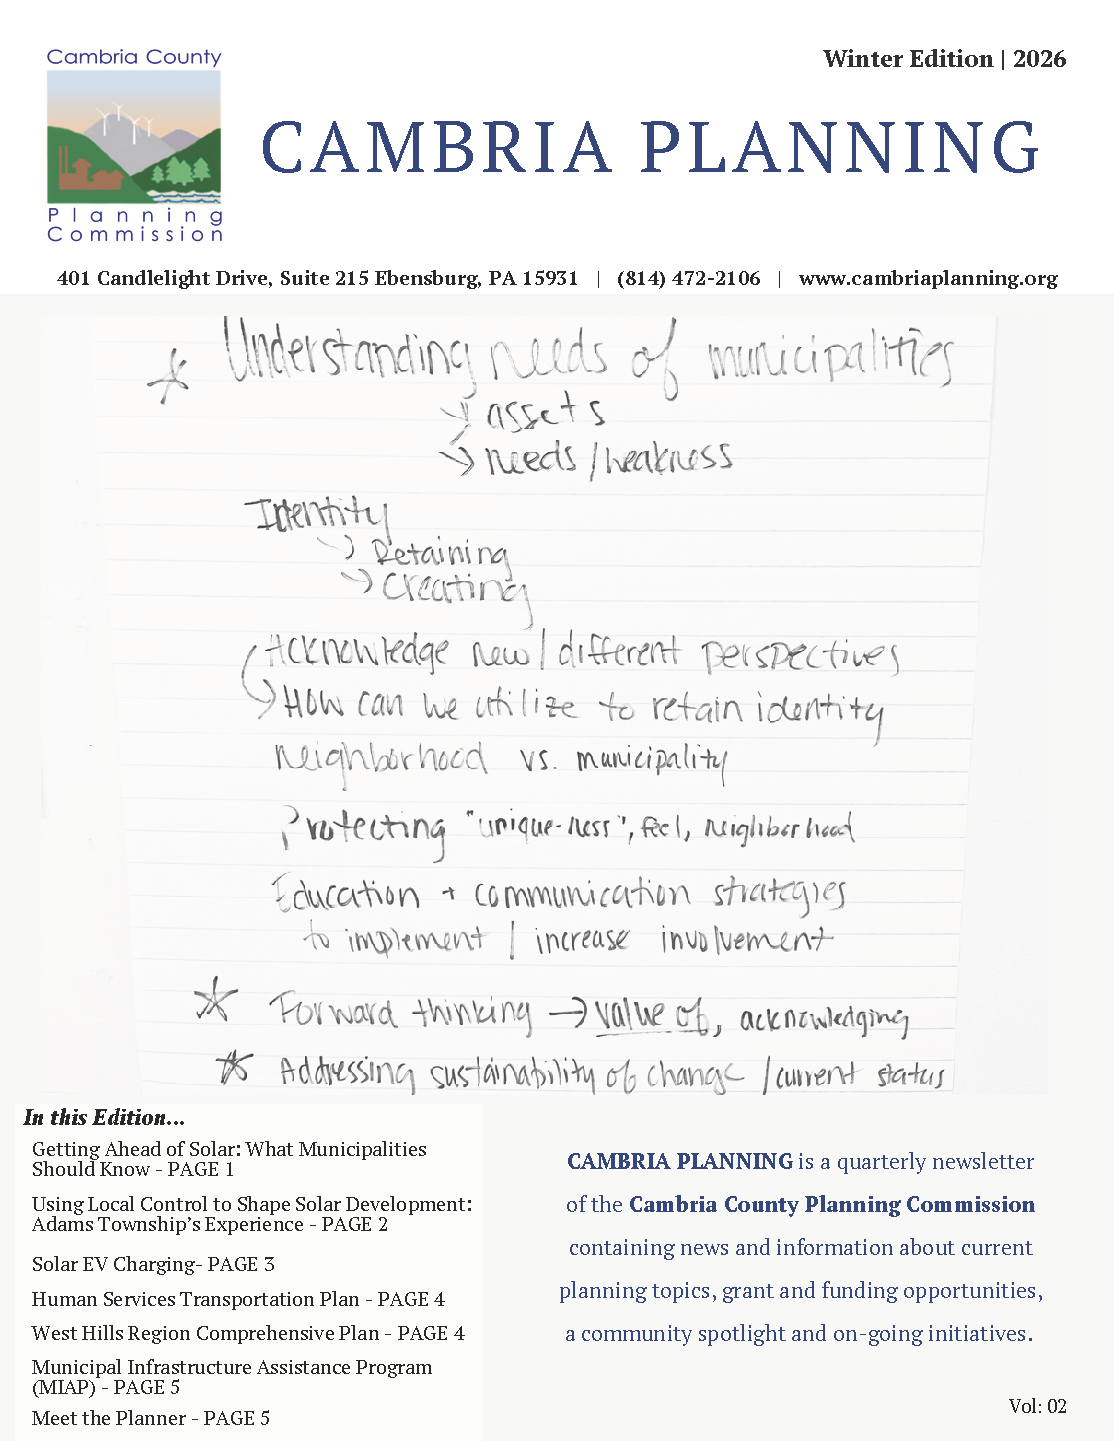 Cambria County
Planning
Commission
Winter Edition | 2026
CAMBRIA PLANNING
401 Candlelight Drive, Suite 215 Ebensburg, PA 15931 | (814) 472-2106 | www.cambriaplanning.org
Understanding needs of municipalities
assets
needs/weakness
Identity
Retaining
Creating
Acknowledge new/different perspectives
How can we utilize to retain identity
Neighborhood vs. municipality
Protecting "unique-ness", feel, neighborhood
Education + communication strategies
to implement / increase involvement
Forward thinking → value of, acknowledging
Addressing sustainability of change / current status
In this Edition...
Getting Ahead of Solar: What Municipalities
Should Know - PAGE 1
Using Local Control to Shape Solar Development:
Adams Township's Experience - PAGE 2
Solar EV Charging- PAGE 3
Human Services Transportation Plan - PAGE 4
West Hills Region Comprehensive Plan - PAGE 4
Municipal Infrastructure Assistance Program
(MIAP) - PAGE 5
Meet the Planner - PAGE 5
CAMBRIA PLANNING is a quarterly newsletter
of the Cambria County Planning Commission
containing news and information about current
planning topics, grant and funding opportunities,
a community spotlight and on-going initiatives.
Vol: 02